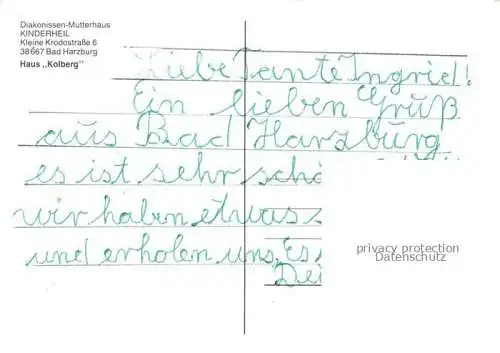 Diakonissen-Mutterhaus
KINDERHEIL
Kleine Krodostraße 6
38667 Bad Harzburg
Haus „Kolberg"
Liebe Tante Ingrid!
Ein lieben Gruß
aus Bad Harzburg
es ist sehr schö
wir haben etwas
und erholen uns. Es
Dei
privacy protection
Datenschutz